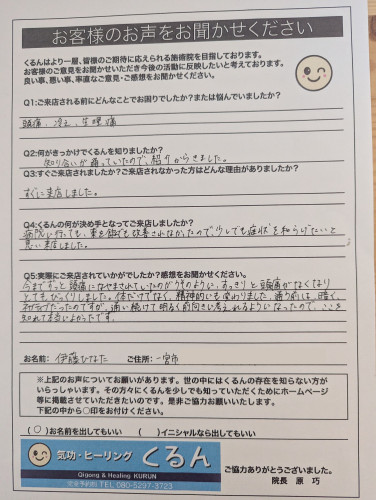 お客様のお声をお聞かせください
くるんはより一層、皆様のご期待に応えられる施術院を目指しております。
お客様のご意見をお聞かせいただき今後の活動に反映したいと考えております。
良い事、悪い事、率直なご意見・ご感想をお聞かせください。
Q1:ご来店される前にどんなことでお困りでしたか？または悩んでいましたか？
頭痛、冷え、生理痛
Q2:何がきっかけでくるんを知りましたか？
知り合いが通っていたので、紹介からきました。
Q3:すぐご来店されましたか？ご来店されなかった方はどんな理由がありましたか？
すぐに来店しました。
Q4:くるんの何が決め手となってご来店しましたか？
病院に行っても、薬を飲んでも改善されなかったので少しでも症状を和らげたいと
思い来店しました。
Q5:実際にご来店されていかがでしたか？感想をお聞かせください。
今までずっと頭痛になやまされていたのがウソのように、すっきりと頭痛がなくなり
とてもびっくりしました。体だけでなく、精神的にも変わりました。通う前は、暗く、
ネガティブだったのですが、通い続けて明るく前向きに考えれるようになったので、ここを
知れて本当によかったです。
お名前: 伊藤ひなた ご住所: 一宮市
※上記のお声についてお願いがあります。世の中にはくるんの存在を知らない方が
いらっしゃいます。その方々にくるんを少しでも知っていただくためにホームページ
等に掲載させていただきたいのです。是非ご協力お願いいたします。
下記の中から〇印をお付けください。
(〇)お名前を出してもいい ( )イニシャルなら出してもいい
気功・ヒーリング くるん
Qigong & Healing KURUN
完全予約制 TEL 080-5297-3723
ご協力ありがとうございました。
院長 原 巧